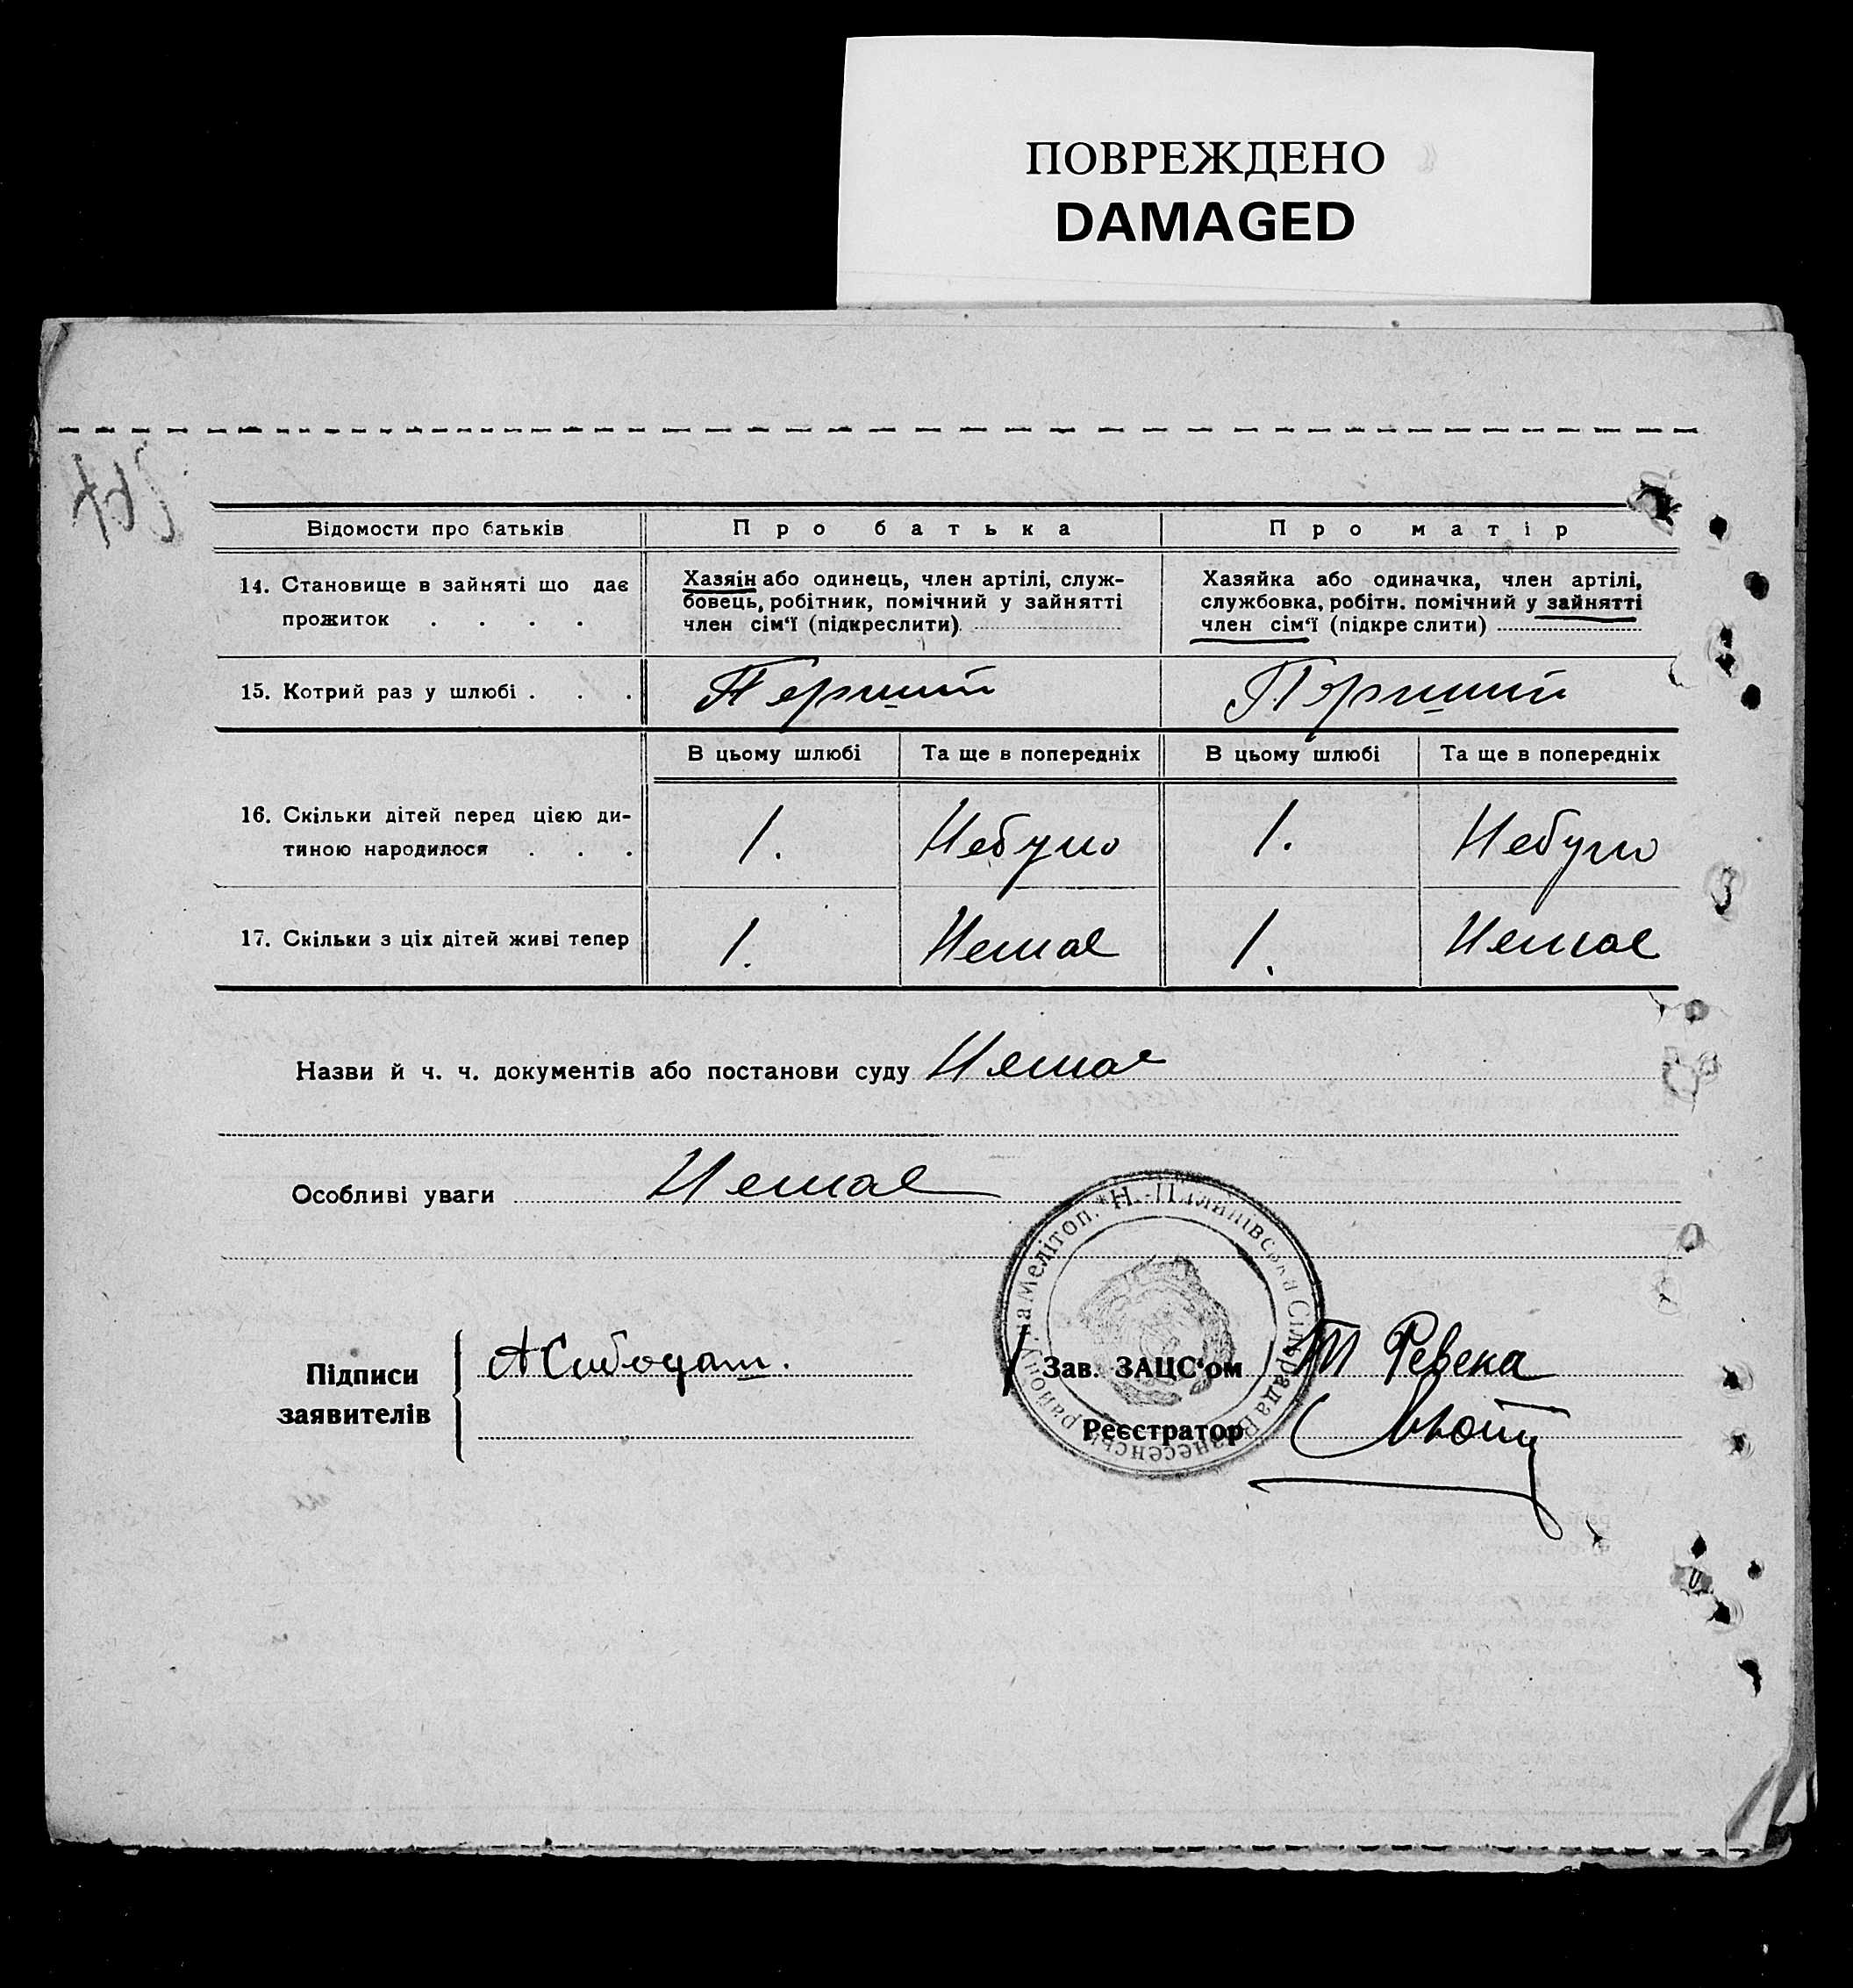 ПОВРЕЖДЕНО
DAMAGED
Відомости про батьків
Про батька
Про матір
14. Становище в зайняті що дає
прожиток . . . .
Хазяін або одинець, член артілі, служ-
бовець, робітник, помічний у зайнятті
член сім‘ї (підкреслити)
Хазяйка або одиначка, член артілі,
службовка, робітн. помічний у зайнятті
член сім‘ї (підкреслити)
15. Котрий раз у шлюбі . . .
Перший
Перший
В цьому шлюбі
Та ще в попередніх
В цьому шлюбі
Та ще в попередніх
16. Скільки дітей перед цією ди-
тиною народилося . . .
1.
Небуло
1.
Небуло
17. Скільки з ціх дітей живі тепер
1.
Немає
1.
Немає
Назви й ч. ч. документів або постанови суду Немає
Особливі уваги Немає
Н.-Пилипівська Сільрада Вознесенськ. району на Мелітоп.
Підписи
заявителів
Зав. ЗАЦС‘ом
Т Ревека
Реєстратор